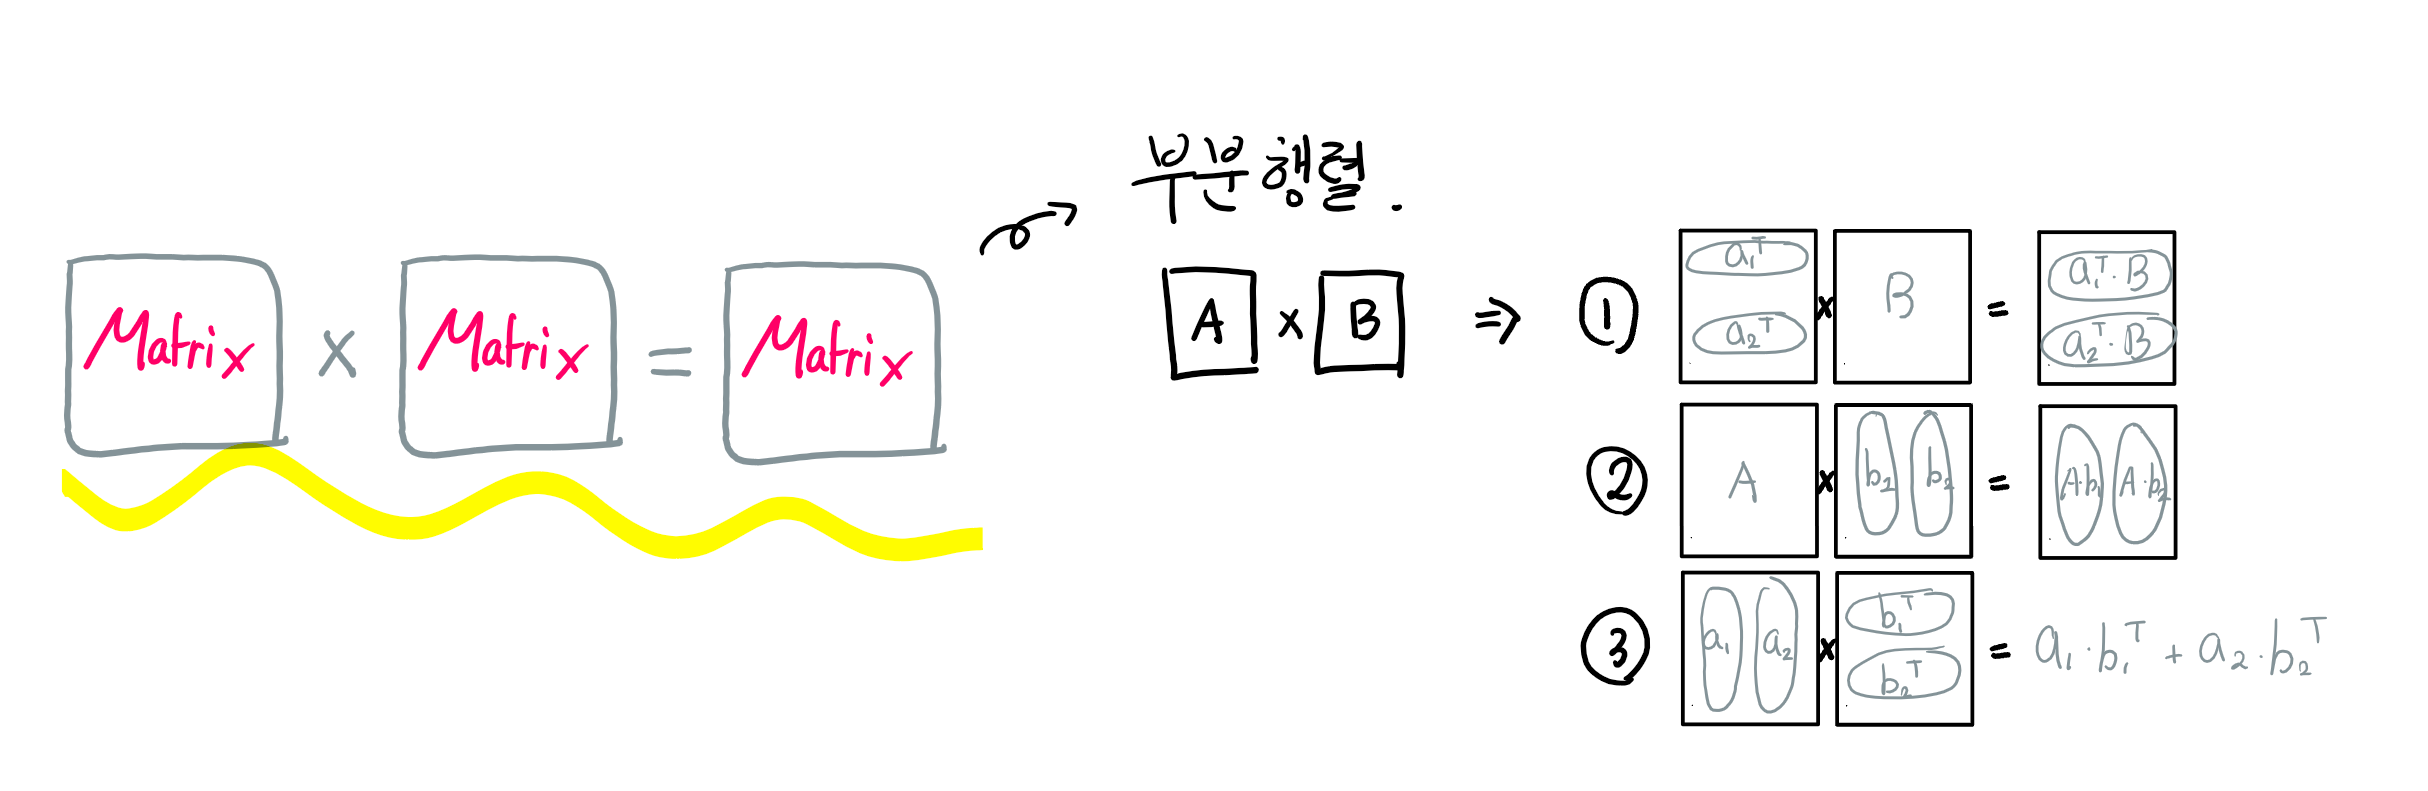 Matrix x Matrix = Matrix
부분행렬.
A x B ⇒
① a₁ᵀ a₂ᵀ x B = a₁ᵀ·B a₂ᵀ·B
② A x b₂ b₂ = A·b₁ A·b₂
③ a₁ a₂ x b₁ᵀ b₂ᵀ = a₁·b₁ᵀ + a₂·b₂ᵀ